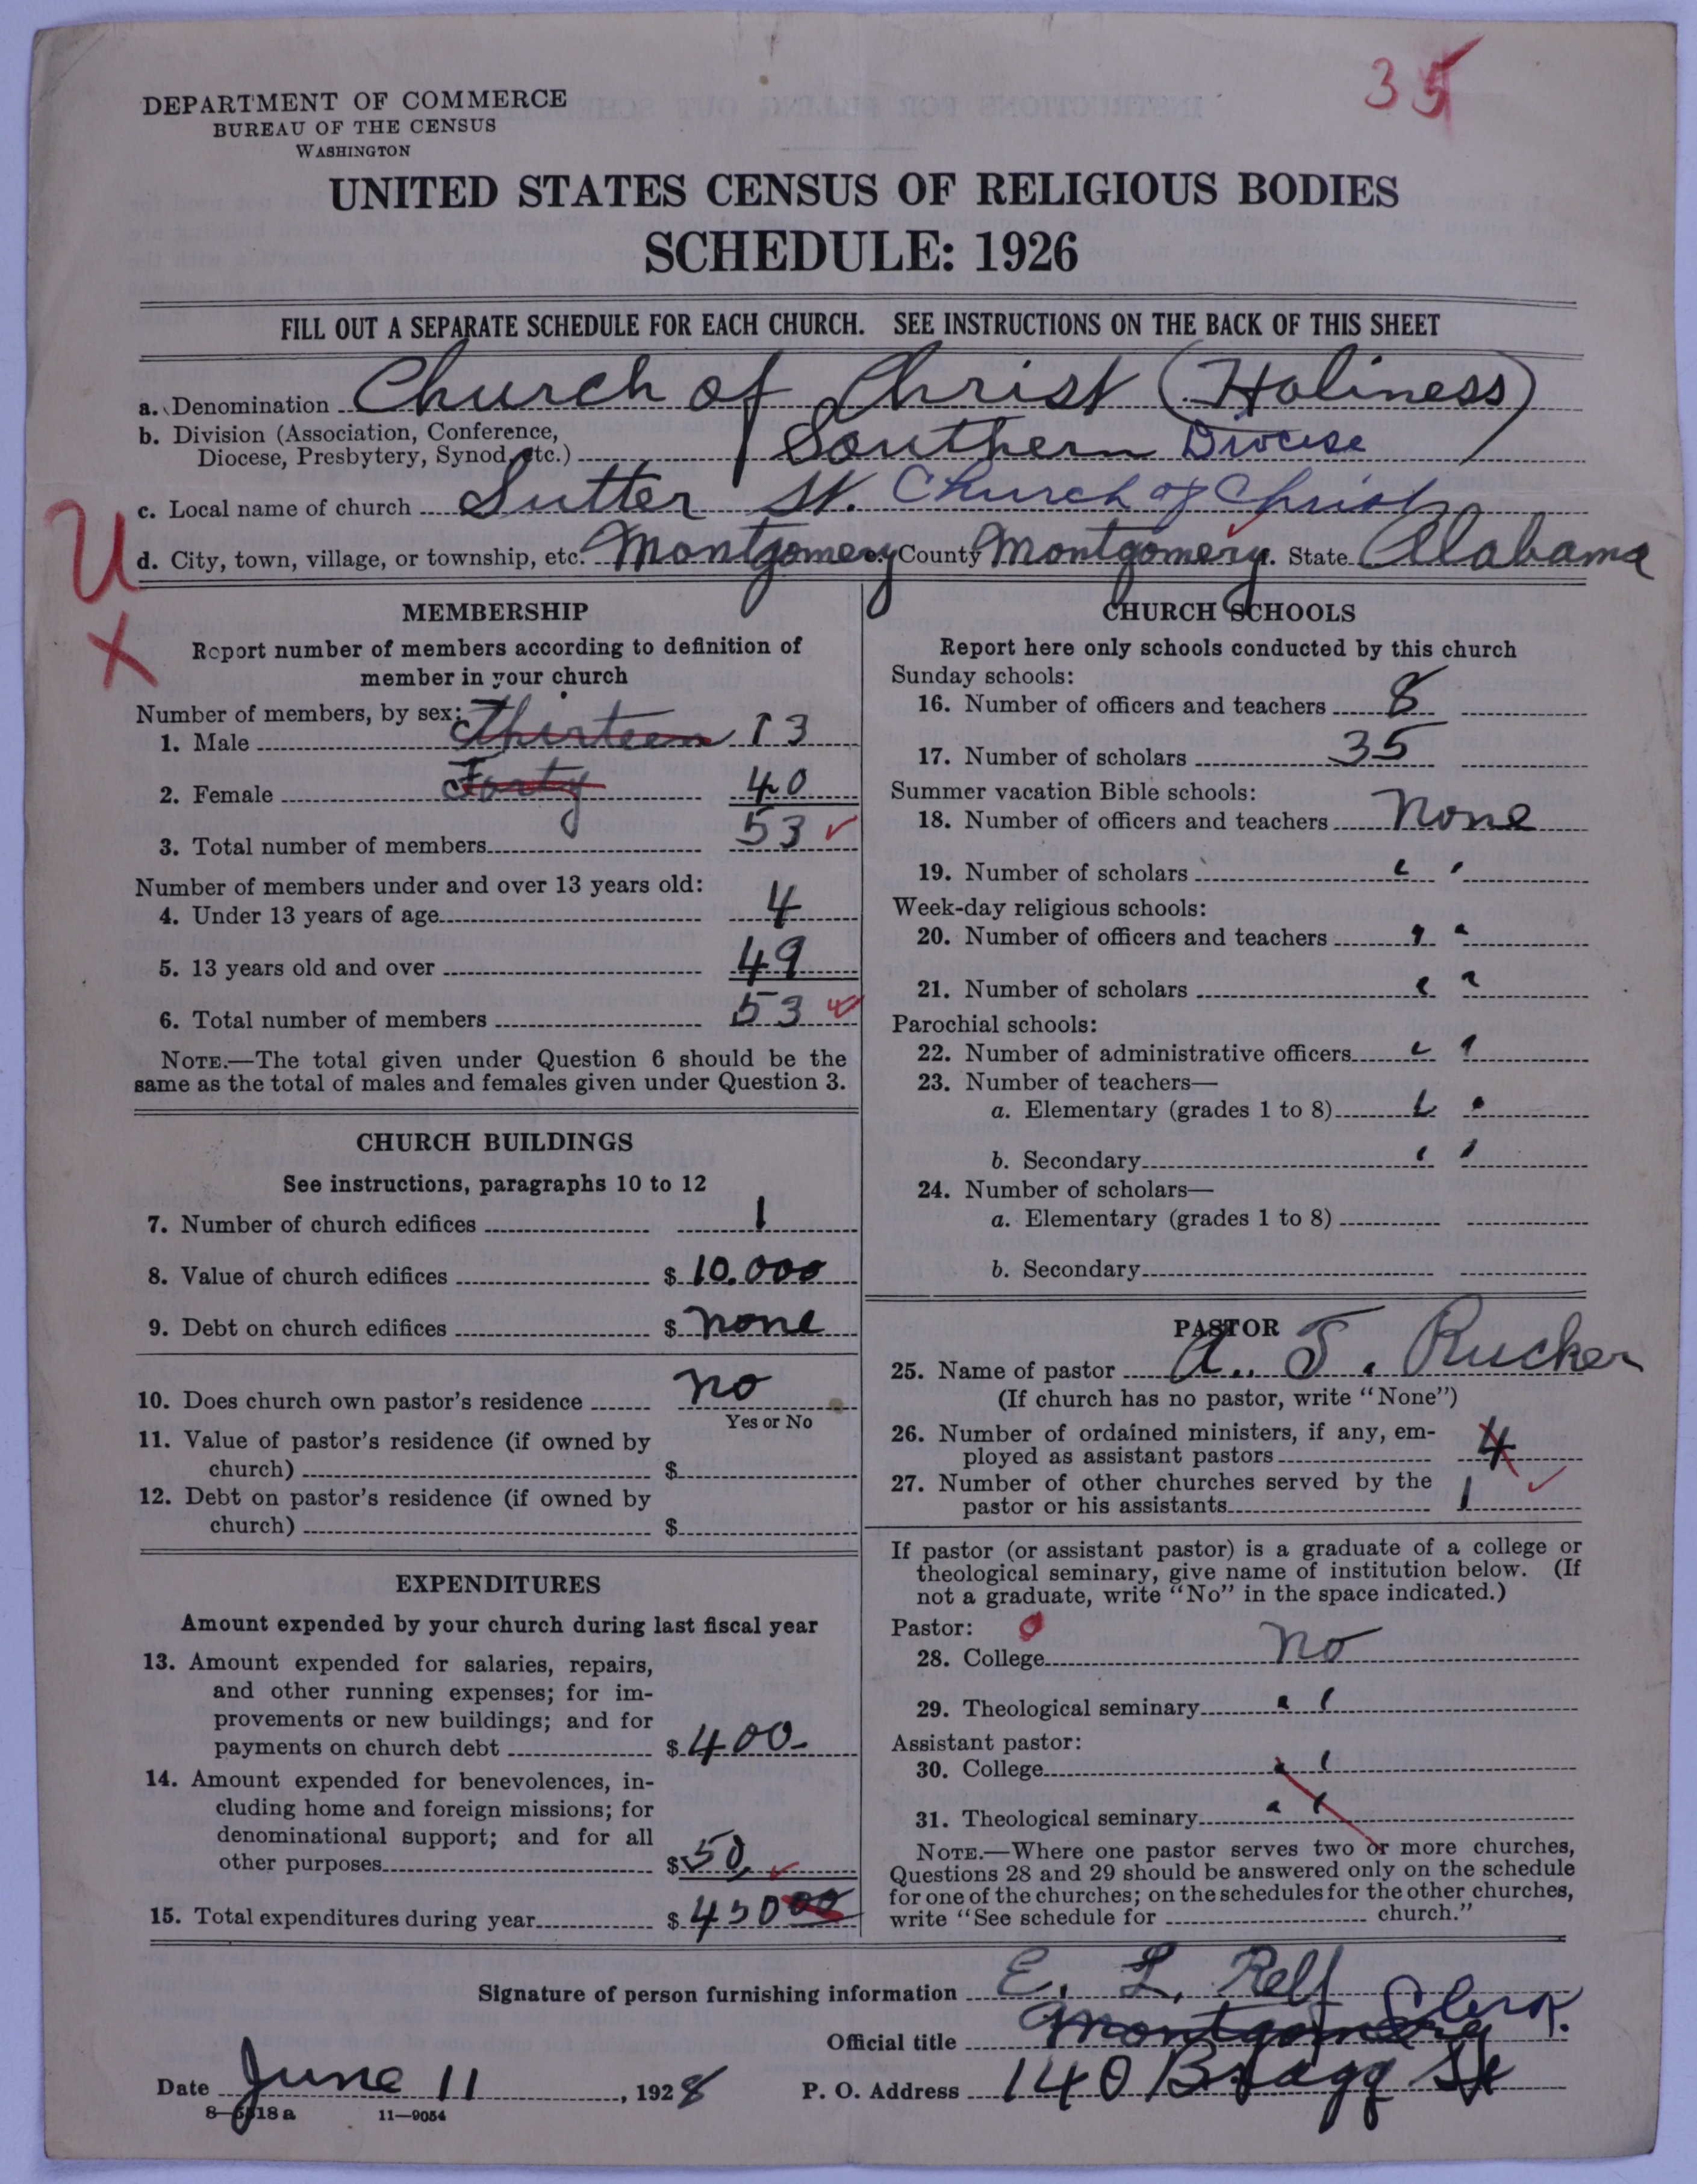 35
DEPARTMENT OF COMMERCE
BUREAU OF THE CENSUS
WASHINGTON
UNITED STATES CENSUS OF RELIGIOUS BODIES
SCHEDULE: 1926
FILL OUT A SEPARATE SCHEDULE FOR EACH CHURCH. SEE INSTRUCTIONS ON THE BACK OF THIS SHEET
a. Denomination Church of Christ (Holiness)
b. Division (Association, Conference,
Diocese, Presbytery, Synod, etc.) Southern Diocese
c. Local name of church Sutter St. Church of Christ
U
d. City, town, village, or township, etc. Montgomery e. County Montgomery f. State Alabama
X
MEMBERSHIP
Report number of members according to definition of
member in your church
Number of members, by sex:
1. Male Thirteen 13
2. Female Forty 40
3. Total number of members 53
Number of members under and over 13 years old:
4. Under 13 years of age 4
5. 13 years old and over 49
6. Total number of members 53
NOTE.—The total given under Question 6 should be the
same as the total of males and females given under Question 3.
CHURCH BUILDINGS
See instructions, paragraphs 10 to 12
7. Number of church edifices 1
8. Value of church edifices $ 10.000
9. Debt on church edifices $ none
10. Does church own pastor's residence no
Yes or No
11. Value of pastor's residence (if owned by
church) $
12. Debt on pastor's residence (if owned by
church) $
EXPENDITURES
Amount expended by your church during last fiscal year
13. Amount expended for salaries, repairs,
and other running expenses; for im-
provements or new buildings; and for
payments on church debt $ 400-
14. Amount expended for benevolences, in-
cluding home and foreign missions; for
denominational support; and for all
other purposes $ 50
15. Total expenditures during year $ 45000
CHURCH SCHOOLS
Report here only schools conducted by this church
Sunday schools:
16. Number of officers and teachers 8
17. Number of scholars 35
Summer vacation Bible schools:
18. Number of officers and teachers none
19. Number of scholars " 
Week-day religious schools:
20. Number of officers and teachers "
21. Number of scholars "
Parochial schools:
22. Number of administrative officers "
23. Number of teachers—
a. Elementary (grades 1 to 8) "
b. Secondary "
24. Number of scholars—
a. Elementary (grades 1 to 8)
b. Secondary
PASTOR
25. Name of pastor A. J. Rucker
(If church has no pastor, write "None")
26. Number of ordained ministers, if any, em-
ployed as assistant pastors 4
27. Number of other churches served by the
pastor or his assistants 1
If pastor (or assistant pastor) is a graduate of a college or
theological seminary, give name of institution below. (If
not a graduate, write "No" in the space indicated.)
Pastor: 0
28. College no
29. Theological seminary "
Assistant pastor:
30. College "
31. Theological seminary "
NOTE.—Where one pastor serves two or more churches,
Questions 28 and 29 should be answered only on the schedule
for one of the churches; on the schedules for the other churches,
write "See schedule for church."
Signature of person furnishing information E. L. Relf
Official title Montgomery Clerk.
Date June 11, 1928 P. O. Address 140 Bragg St
8—5518a 11—9054